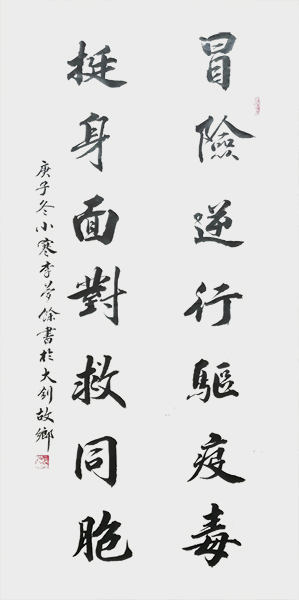 冒險逆行驅疫毒
挺身面對救同胞
庚子冬小寒李夢餘書於大釗故鄉